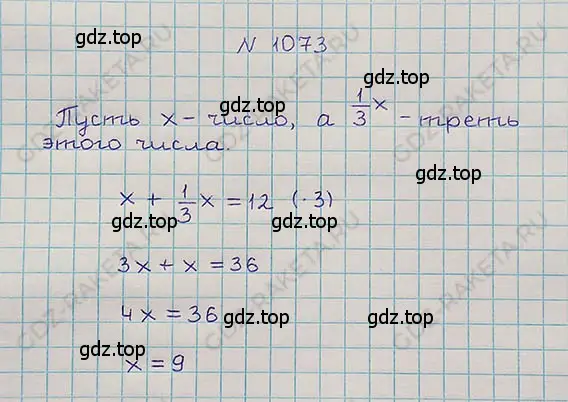 gdz.top
N 1073
gdz.top
Пусть x - число, а 1/3 x - треть
gdz.top
этого числа.
x + 1/3 x = 12 (· 3)
gdz.top gdz.top
3x + x = 36
4x = 36 gdz.top gdz.top
gdz.top
x = 9
GDZ-RAKETA.RU
GDZ-RAKETA.RU
GDZ-RAKETA.RU
GDZ-RAKETA.RU